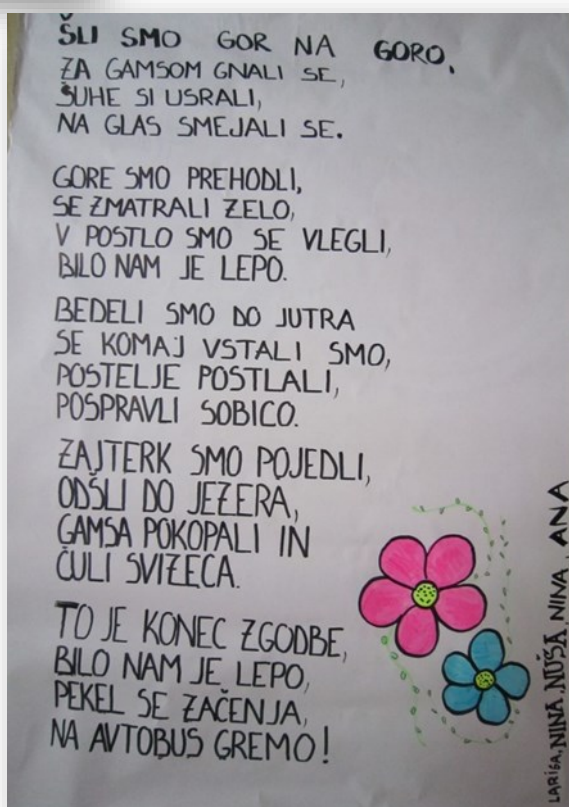 ŠLI SMO GOR NA GORO,
ZA GAMSOM GNALI SE,
ŠUHE SI USRALI,
NA GLAS SMEJALI SE.
GORE SMO PREHODLI,
SE ZMATRALI ZELO,
V POSTLO SMO SE VLEGLI,
BILO NAM JE LEPO.
BEDELI SMO DO JUTRA
SE KOMAJ VSTALI SMO,
POSTELJE POSTLALI,
POSPRAVLI SOBICO.
ZAJTERK SMO POJEDLI,
ODŠLI DO JEZERA,
GAMSA POKOPALI IN
ČULI SVIZECA.
TO JE KONEC ZGODBE,
BILO NAM JE LEPO,
PEKEL SE ZAČENJA,
NA AVTOBUS GREMO!
LARISA, NINA, NUŠA, NINA, ANA